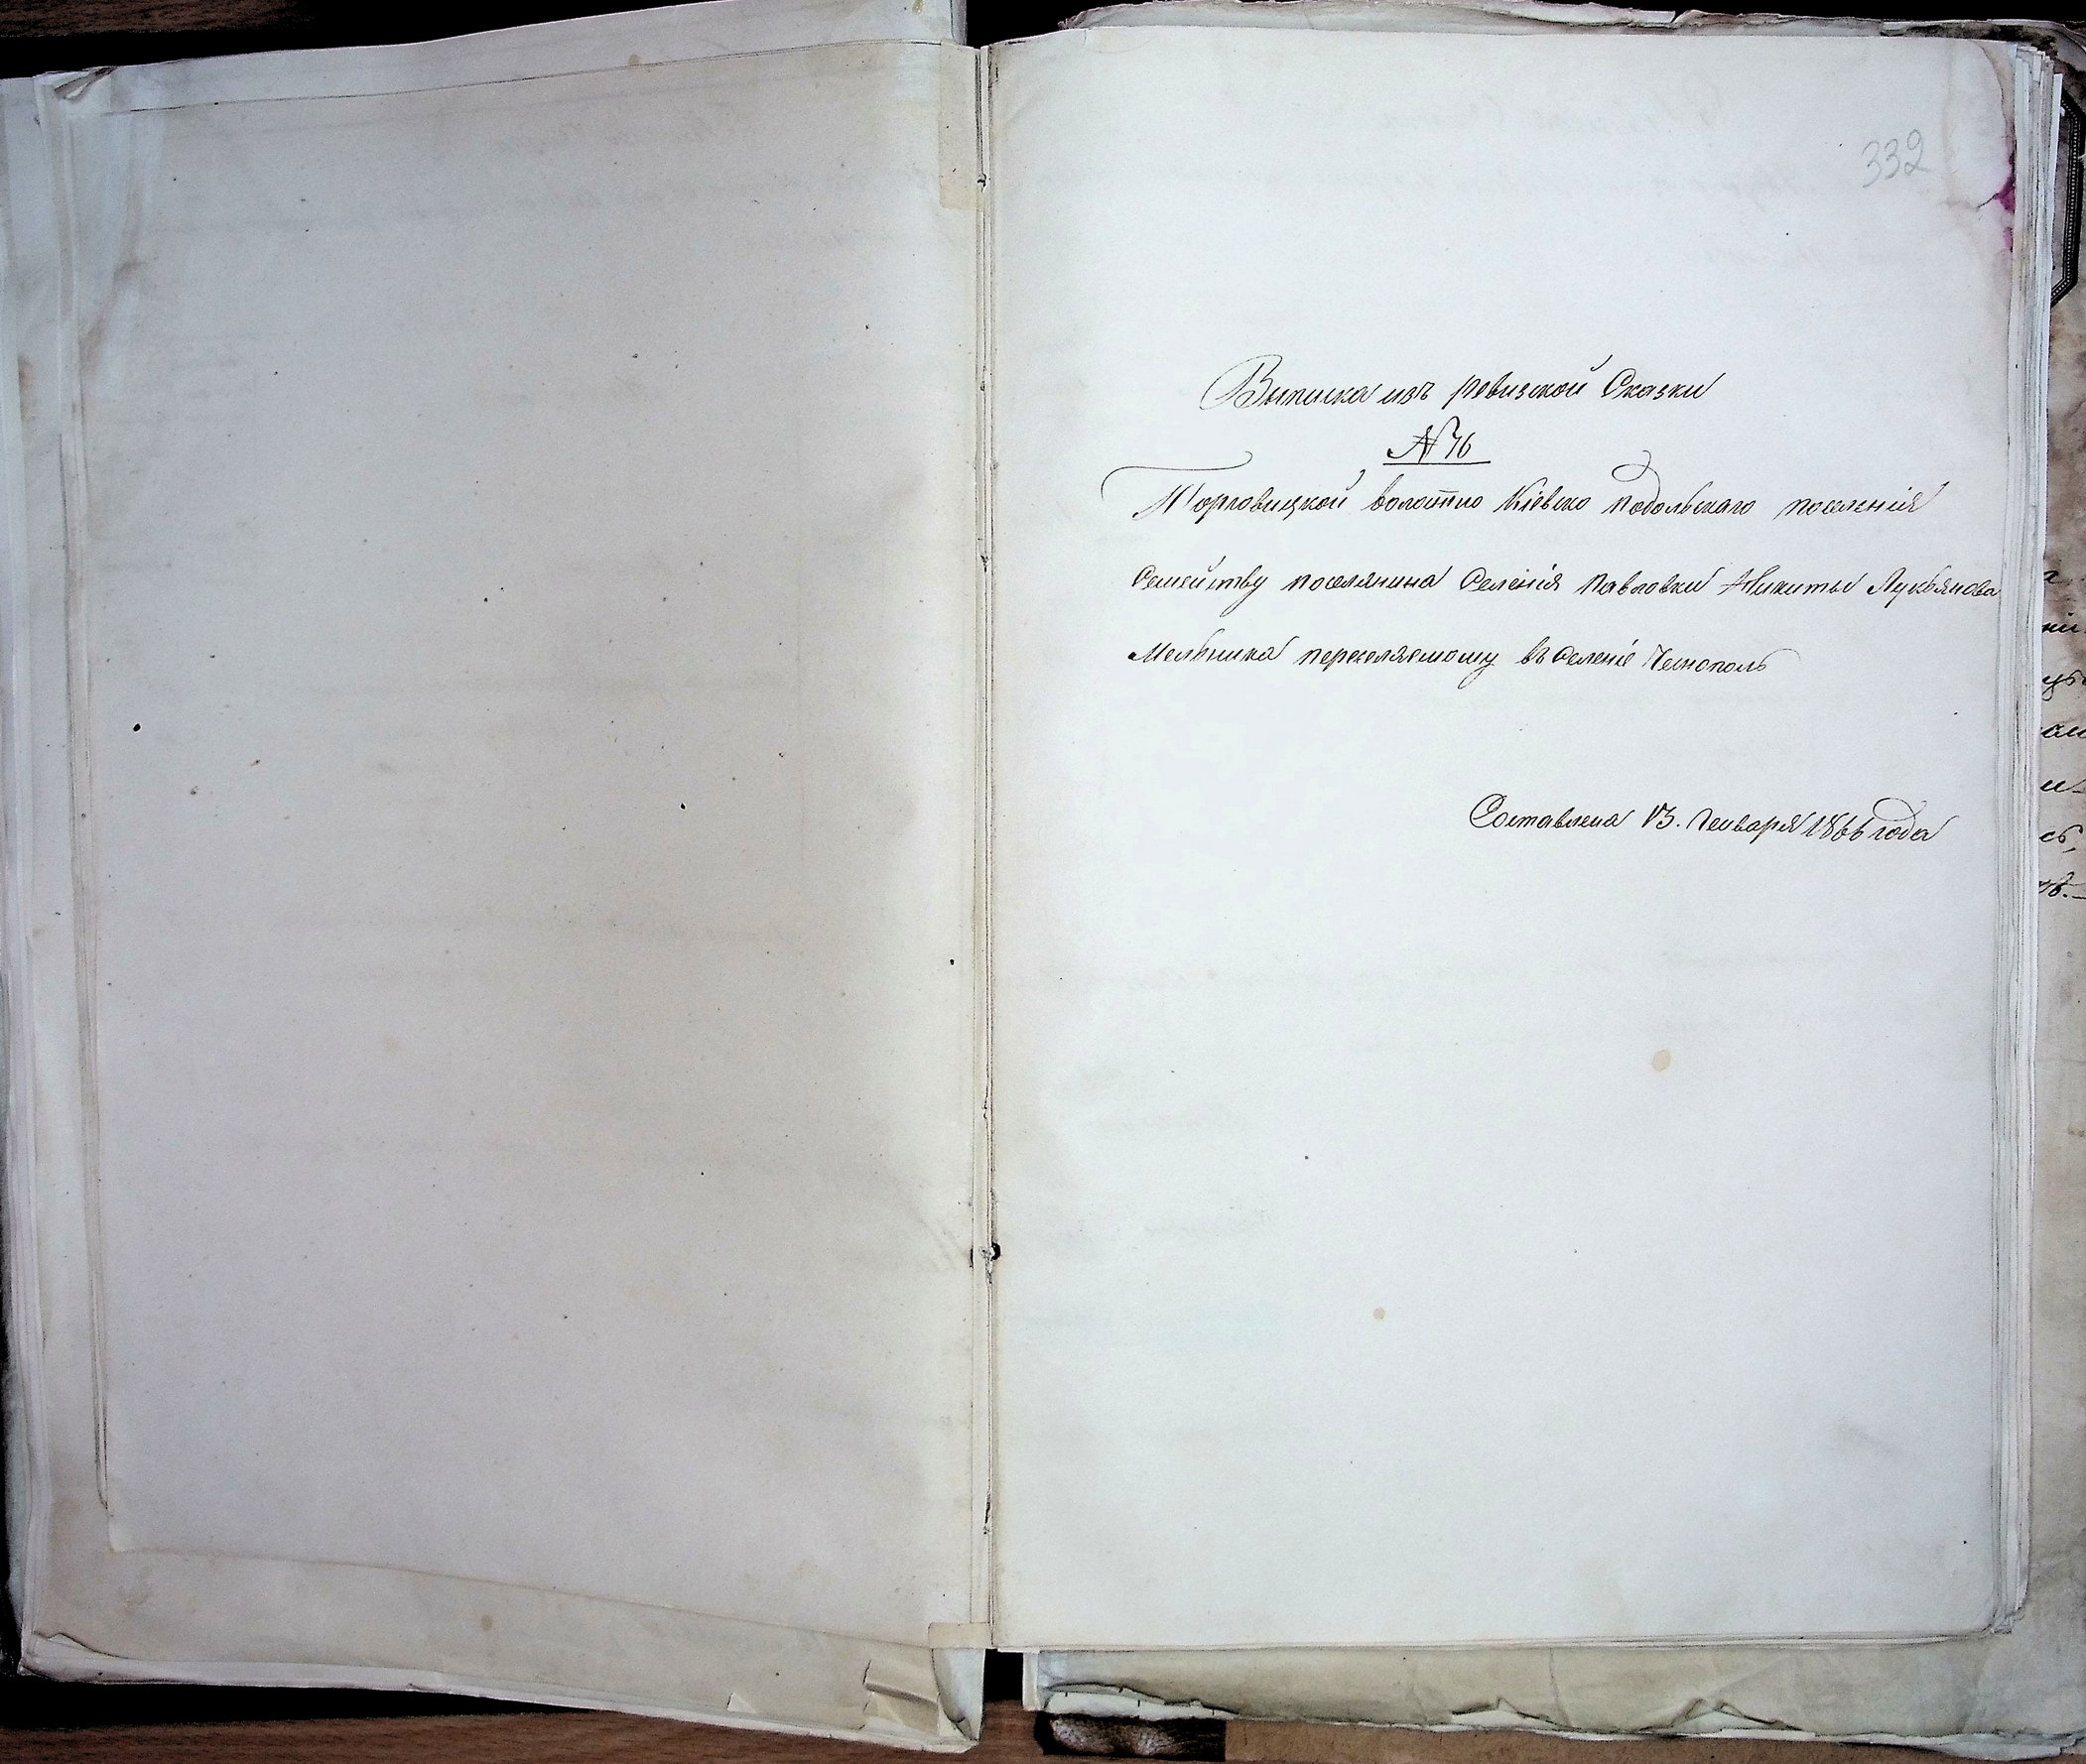 332
Выписка изъ ревизской Сказки
№ 16
Торговицкой волости Кіевско Подольскаго поселенія
Семейству поселянина Селенія Павловки Никиты Лукьянова
Мельника переселяемому въ Селеніе
Составлена 13. Генваря 1866 года